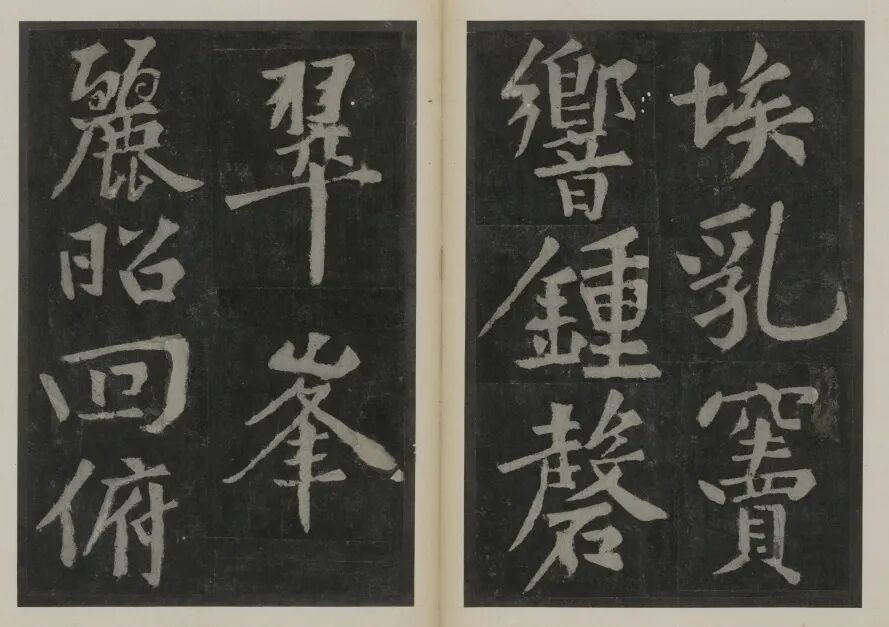 埃乳竇
響鍾磬
翠峯
麗昭回俯